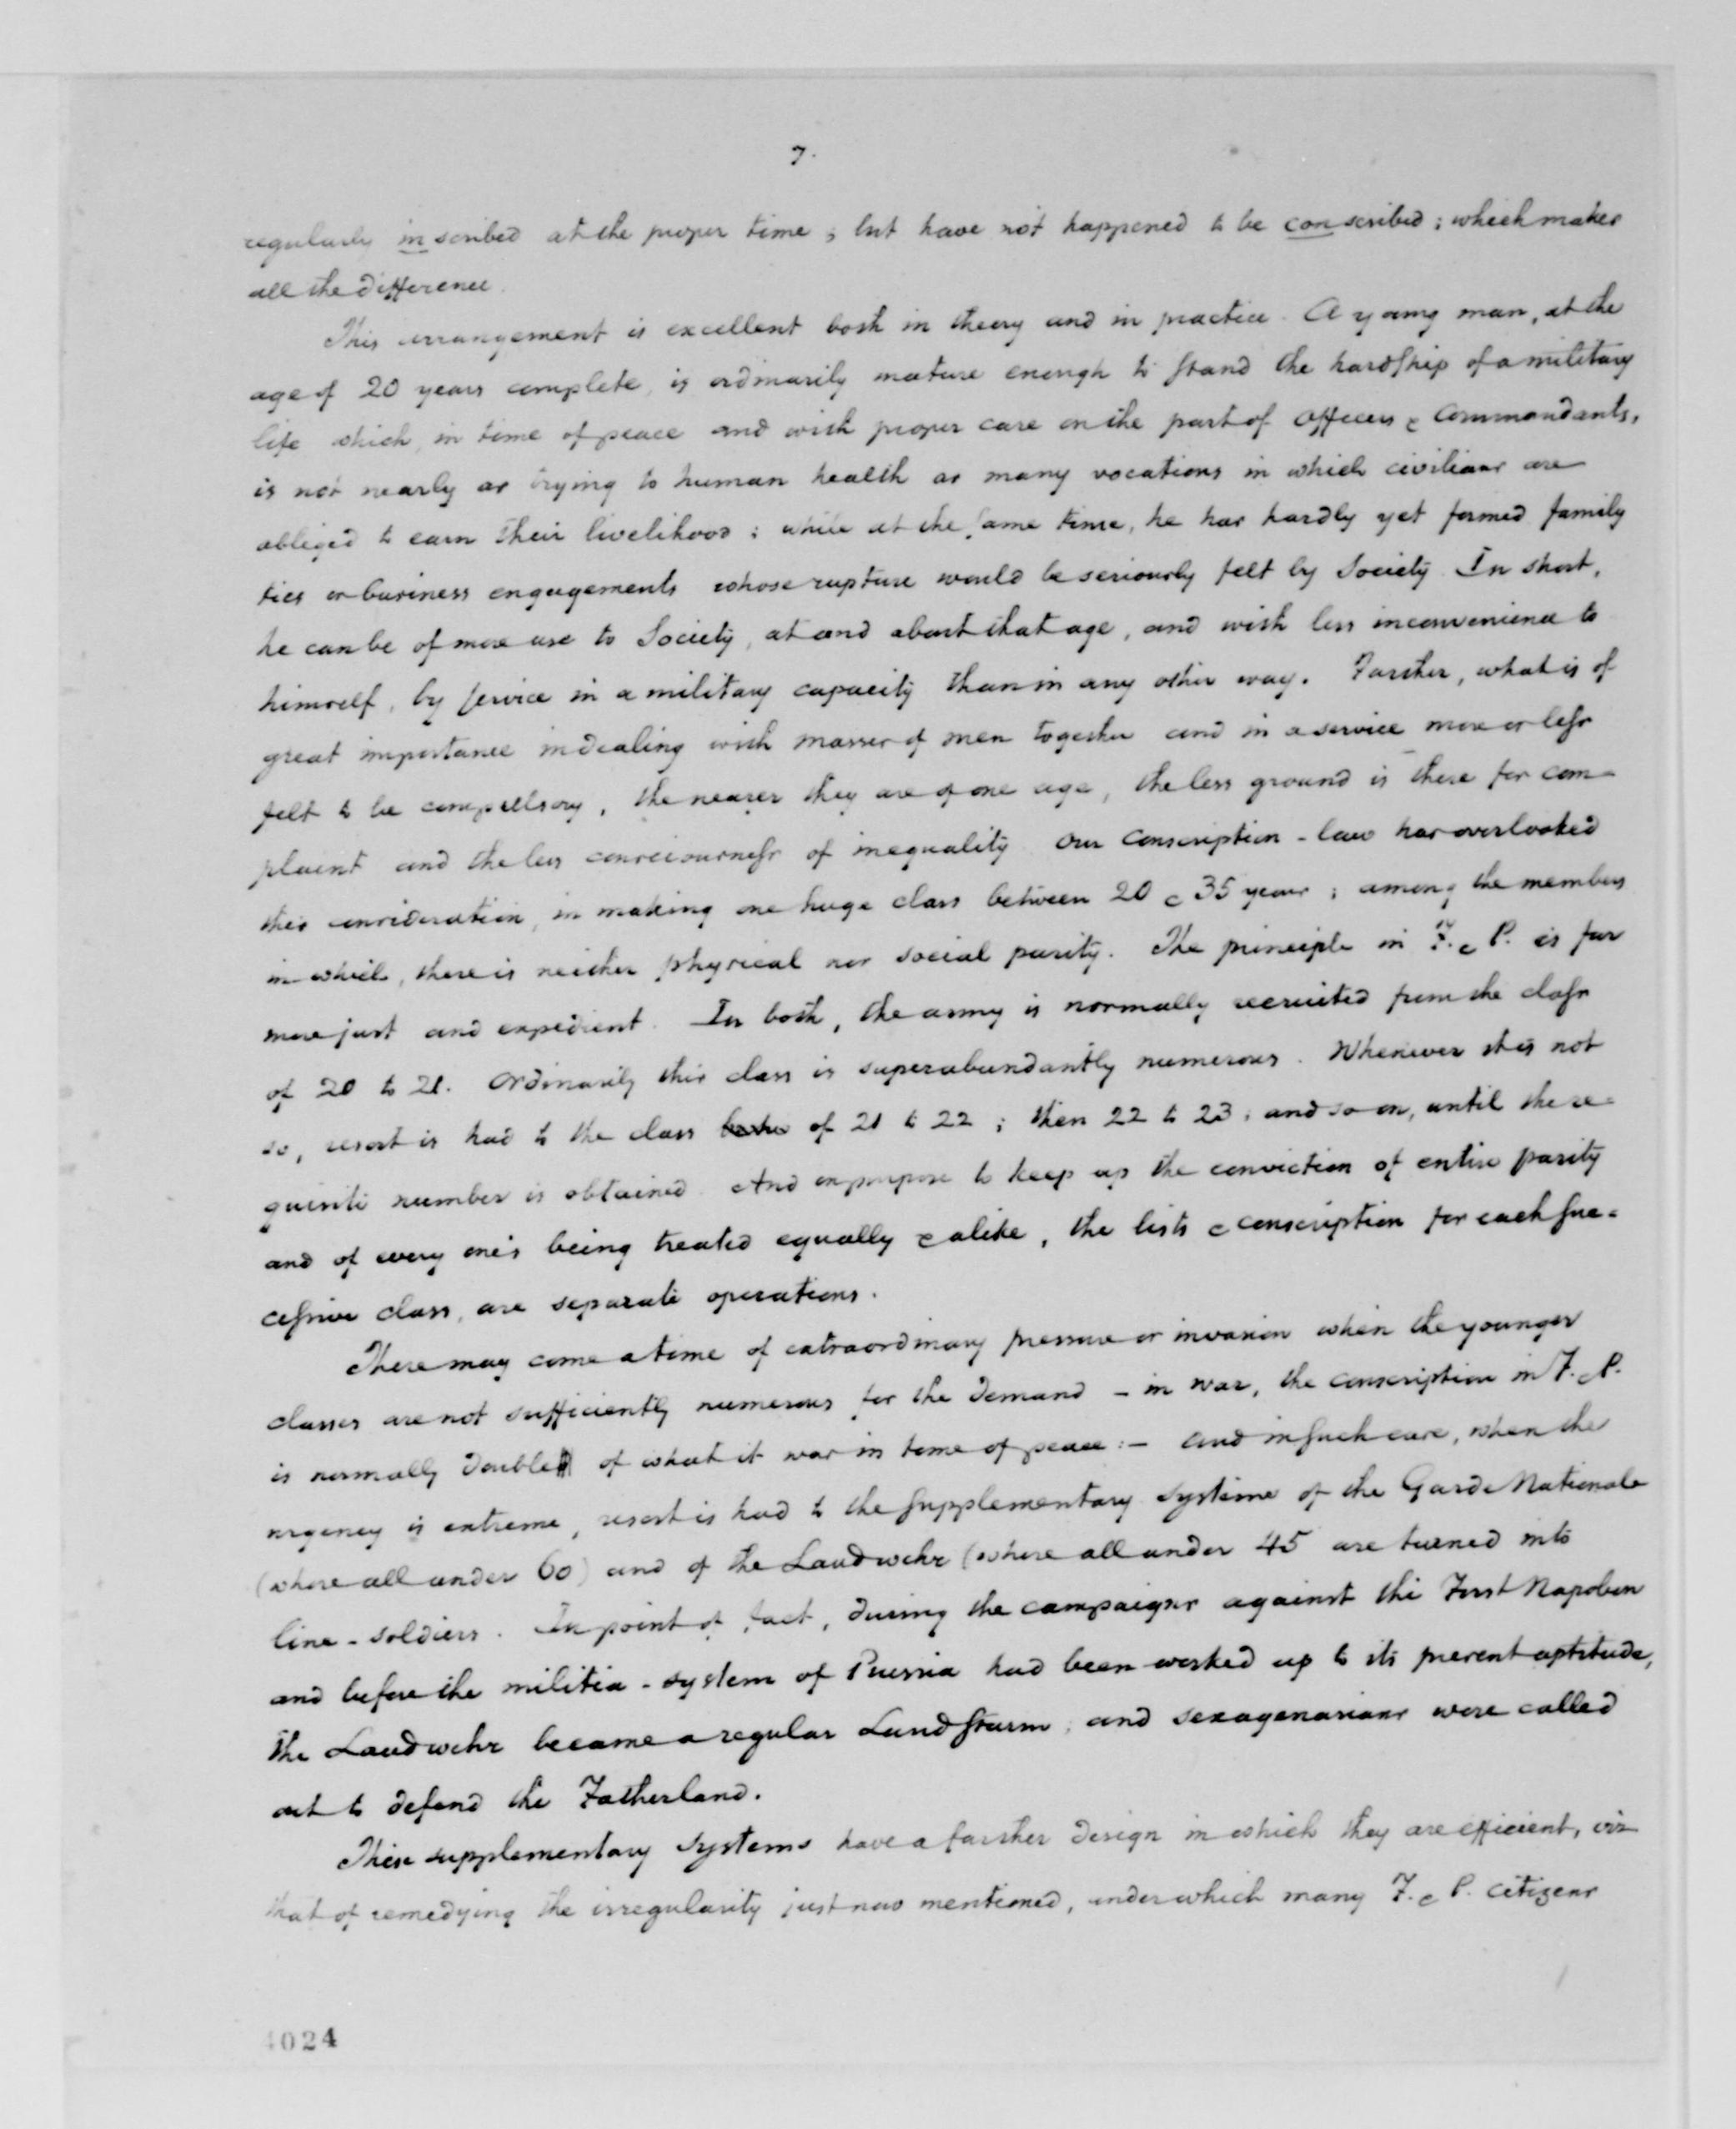 7.
regularly inscribed at the proper time; but have not happened to be conscribed; which makes
all the difference.
This arrangement is excellent both in theory and in practice. A young man, at the
age of 20 years complete, is ordinarily mature enough to stand the hardship of a military
life which, in time of peace and with proper care on the part of officers & Commandants,
is not nearly as trying to human health as many vocations in which civilians are
obliged to earn their livelihood: while at the same time, he has hardly yet formed family
ties or business engagements whose rupture would be seriously felt by Society. In short,
he can be of more use to Society, at and about that age, and with less inconvenience to
himself, by service in a military capacity than in any other way. Farther, what is of
great importance in dealing with masses of men together and in a service more or less
felt to be compulsory, the nearer they are of one age, the less ground is there for com-
plaint and the less consciousness of inequality. Our Conscription-law has overlooked
this consideration, in making one huge class between 20 & 35 years; among the members
in which, there is neither physical nor social parity. The principle in F. & P. is far
more just and expedient. In both, the army is normally recruited from the class
of 20 to 21. Ordinarily this class is superabundantly numerous. Whenever it is not
so, resort is had to the class of 21 to 22; then 22 to 23; and so on, until the re-
quisite number is obtained. And on purpose to keep up the conviction of entire parity
and of every one's being treated equally & alike, the lists & conscription for each suc-
cessive class, are separate operations.
There may come a time of extraordinary pressure or invasion when the younger
classes are not sufficiently numerous for the demand - in war, the conscription in F. & P.
is normally double of what it was in time of peace:- and in such case, when the
urgency is extreme, resort is had to the supplementary systems of the Garde Nationale
(where all under 60) and of the Landwehr (where all under 45 are turned into
line-soldiers. In point of fact, during the campaigns against the First Napoleon
and before the militia-system of Prussia had been worked up to its present aptitude,
the Landwehr became a regular Landsturm; and sexagenarians were called
out to defend the Fatherland.
These supplementary systems have a farther design in which they are efficient, viz
that of remedying the irregularity just now mentioned, under which many F. & P. citizens
4024